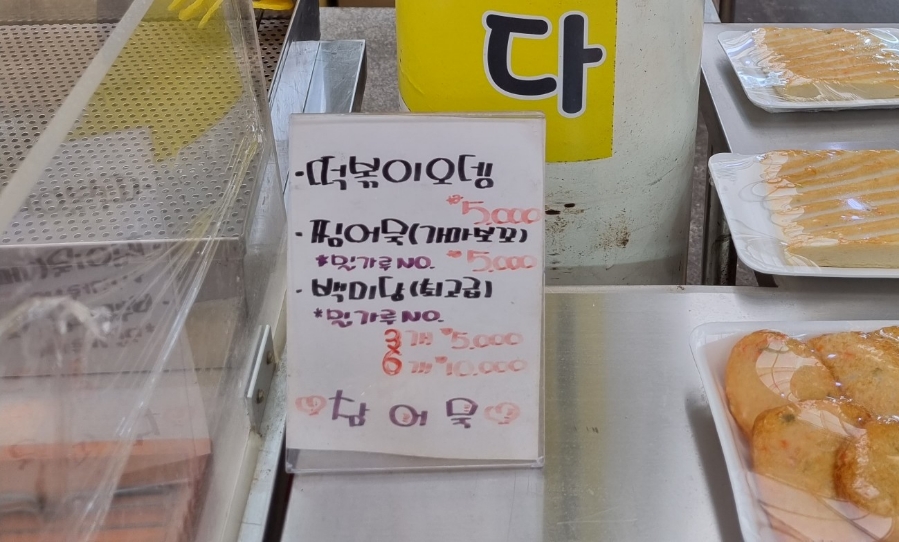 다
·떡볶이오뎅
₩5,000
·찜어묵(가마보꼬)
*밀가루NO. ₩5,000
·백미당(최고급)
*밀가루NO.
3개 ₩5.000
6개 ₩10,000
참 어 묵